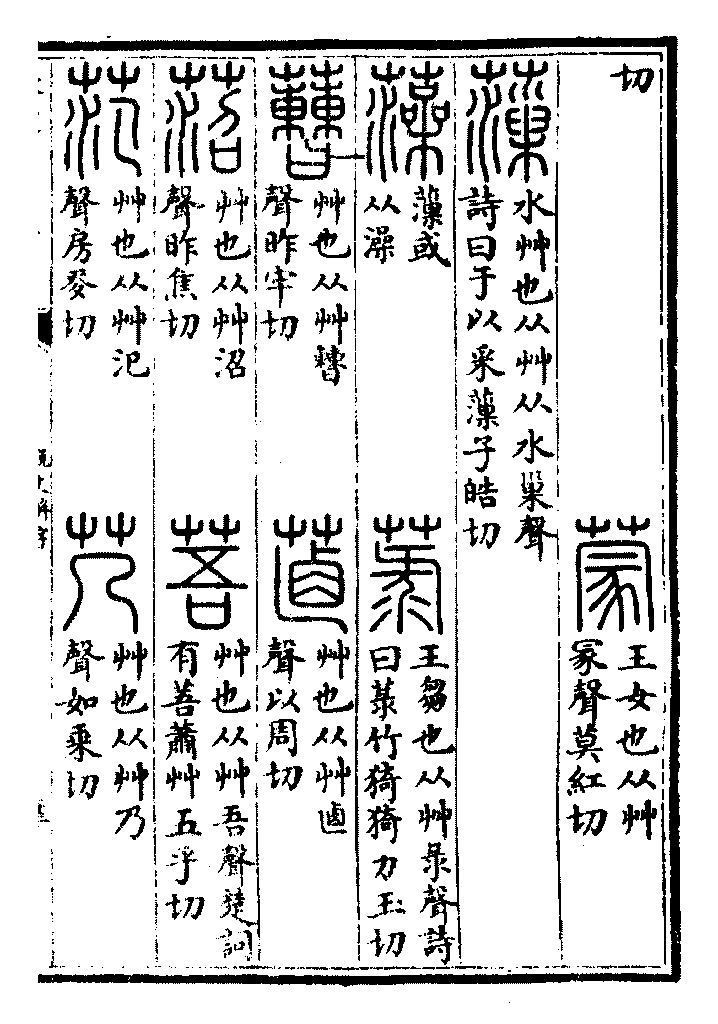 切
蒙
王女也从艸
冡聲莫紅切
薻
水艸也从艸从水巢聲
詩曰于以采薻子皓切
藻
薻或
从澡
菉
王芻也从艸彔聲詩
曰菉竹猗猗力玉切
蓸
艸也从艸曹
聲昨牢切
艸也从艸卣
聲以周切
菬
艸也从艸沼
聲昨焦切
䓊
艸也从艸吾聲楚詞
有䓊蕭艸五乎切
范
艸也从艸氾
聲房㚇切
艿
艸也从艸乃
聲如乘切